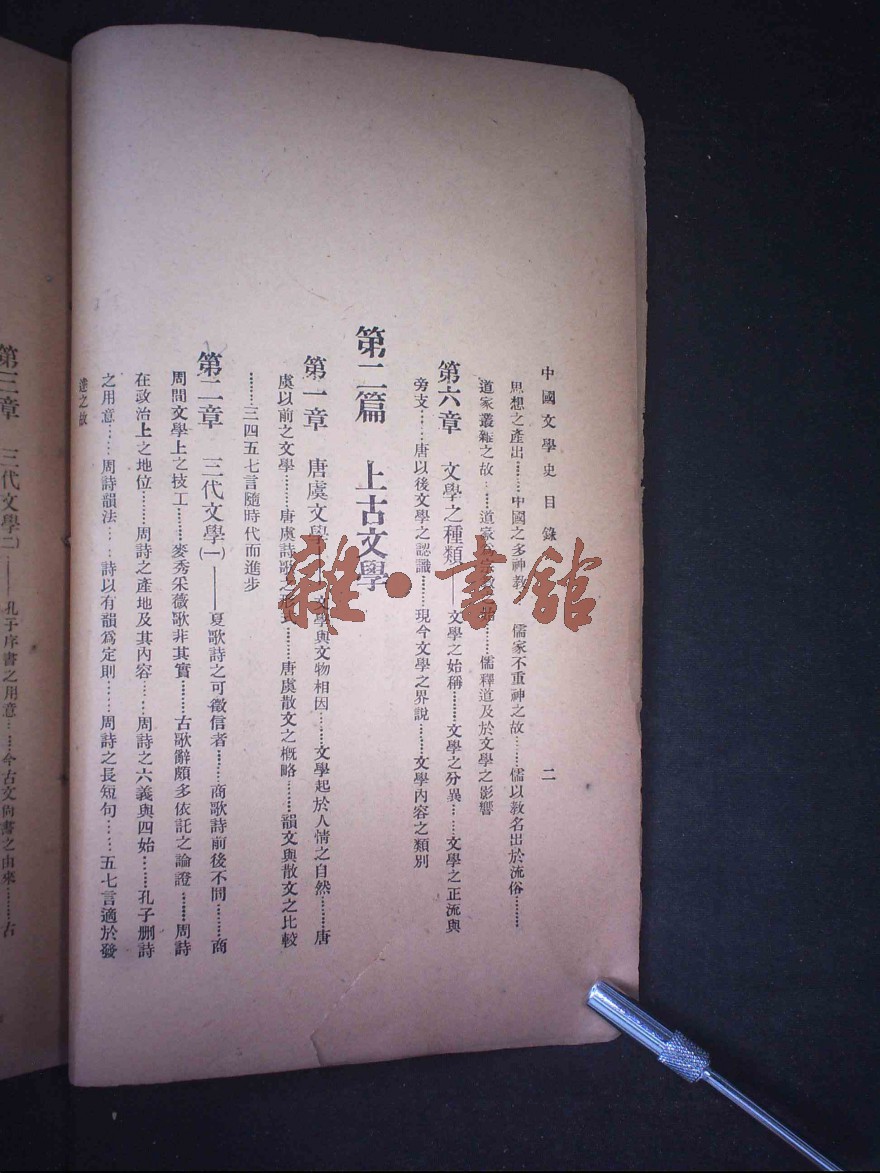 中國文學史目錄 二
思想之產出………中國之多神教 儒家不重神之故……儒以教名出於流俗………
道家叢雜之故…道家 儒釋道及於文學之影響
第六章 文學之種類——文學之始稱………文學之分異……文學之正流與
旁支……唐以後文學之認識………現今文學之界說………文學內容之類別
第二篇 上古文學
第一章 唐虞文學 文學與文物相因……文學起於人情之自然………唐
虞以前之文學………唐虞詩歌之形式………唐虞散文之概略………韻文與散文之比較
………三四五七言隨時代而進步
第二章 三代文學(一)——夏歌詩之可徵信者………商歌詩前後不同………商
周間文學上之技工………麥秀采薇歌非其實………古歌辭頗多依託之論證………周詩
在政治上之地位………周詩之產地及其內容……周詩之六義與四始………孔子删詩
之用意……周詩韻法……詩以有韻爲定則……周詩之長短句……五七言適於發
達之故
第三章 三代文學(二)——孔子序書之用意……今古文尚書之由來………古
雜·書館